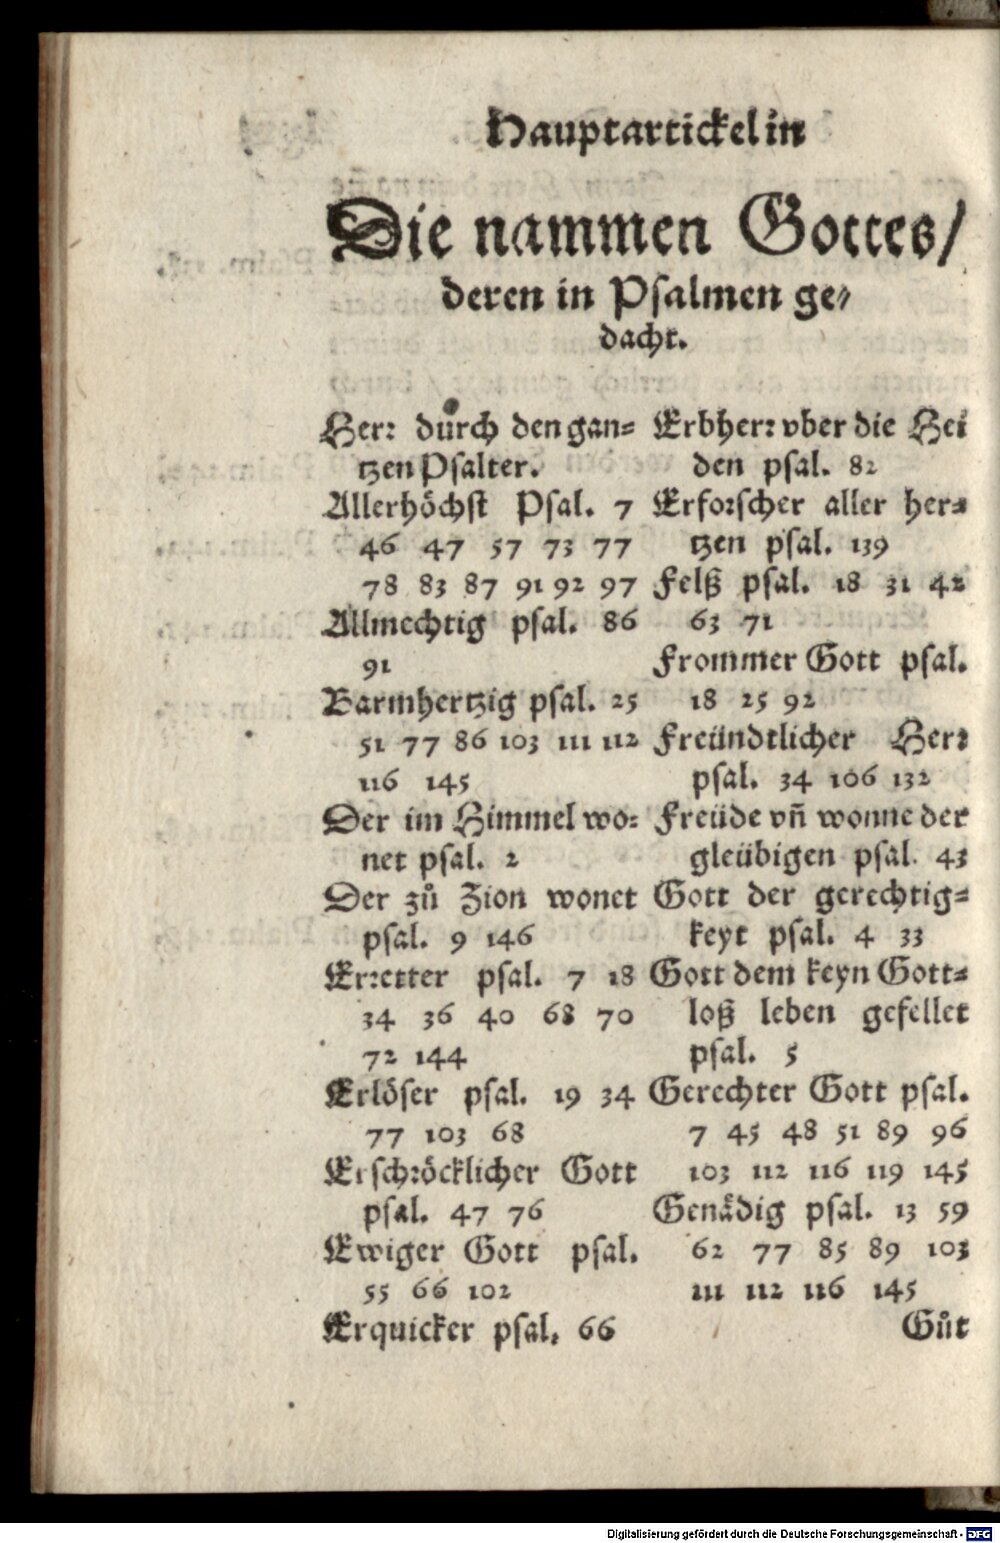 Hauptartickel in
Die nammen Gottes/
deren in Psalmen ge⸗
dacht.
Herr durch den gan⸗
tzen Psalter.
Allerhöchst Psal. 7
46 47 57 73 77
78 83 87 91 92 97
Allmechtig psal. 86
91
Barmhertzig psal. 25
51 77 86 103 111 112
116 145
Der im Himmel wo⸗
net psal. 2
Der zů Zion wonet
psal. 9 146
Erretter psal. 7 18
34 36 40 68 70
72 144
Erlöser psal. 19 34
77 103 68
Erschröcklicher Gott
psal. 47 76
Ewiger Gott psal.
55 66 102
Erquicker psal. 66
Erbherr vber die Hei
den psal. 82
Erforscher aller her⸗
tzen psal. 139
Felß psal. 18 31 42
63 71
Frommer Gott psal.
18 25 92
Freündtlicher Herr
psal. 34 106 132
Freüde vñ wonne der
gleübigen psal. 43
Gott der gerechtig⸗
keyt psal. 4 33
Gott dem keyn Gott⸗
loß leben gefellet
psal. 5
Gerechter Gott psal.
7 45 48 51 89 96
103 112 116 119 145
Genädig psal. 13 59
62 77 85 89 103
111 112 116 145
Gůt
Digitalisierung gefördert durch die Deutsche Forschungsgemeinschaft - DFG